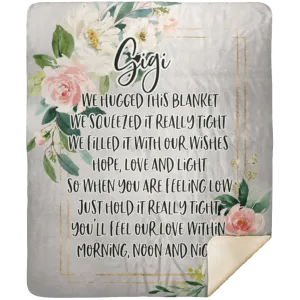 Gigi
WE HUGGED THIS BLANKET
WE SQUEEZED IT REALLY TIGHT
WE FILLED IT WITH OUR WISHES
HOPE, LOVE AND LIGHT
SO WHEN YOU ARE FEELING LOW
JUST HOLD IT REALLY TIGHT
YOU'LL FEEL OUR LOVE WITHIN
MORNING, NOON AND